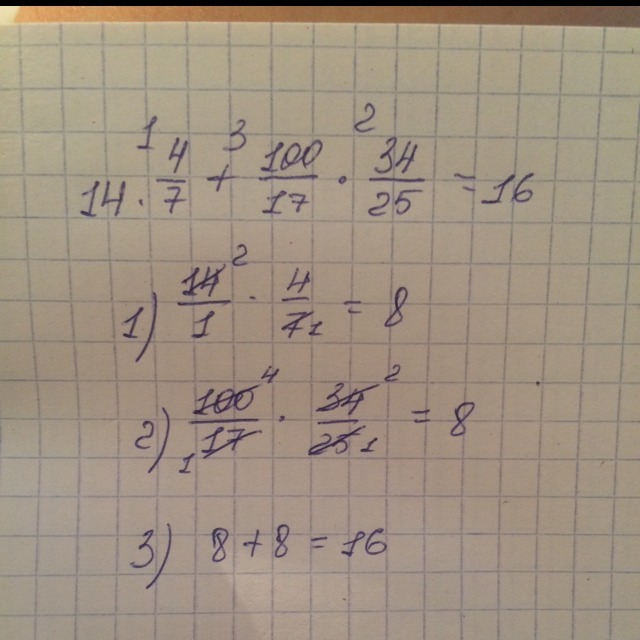 1 3 2
14 · 4/7 + 100/17 · 34/25 = 16
1) 14/1 2 · 4/7 1 = 8
2) 100/17 4 1 · 34/25 2 1 = 8
3) 8 + 8 = 16